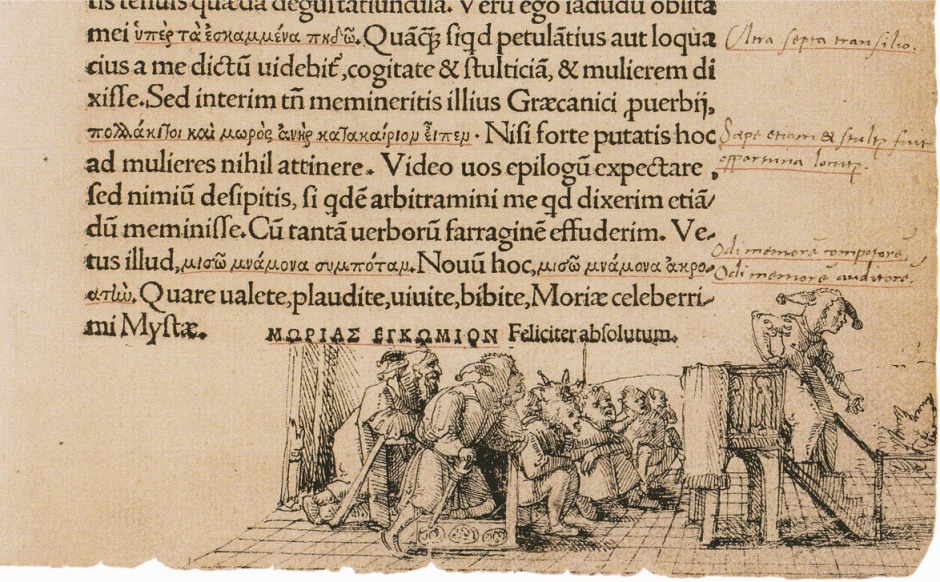 tis tenuis quædã deguſtatiuncula. Verũ ego iãdudũ oblita
mei ὑπὲρ τὰ ἐσκαμμένα πηδῶ. Quãq̃ꝫ ſiqd petulãtius aut loqua
cius a me dictũ uidebit̃, cogitate & ſtulticiã, & mulierem di
xiſſe. Sed interim tñ memineritis illius Græcanici ꝓuerbij,
πολλάκι τοι καὶ μωρὸς ἀνὴρ κατακαίριον εἶπεν. Niſi forte putatis hoc
ad mulieres nihil attinere. Video uos epilogũ expectare,
ſed nimiũ deſipitis, ſi qdẽ arbitramini me qd dixerim etiã
dũ meminiſſe. Cũ tantã uerborũ farraginẽ effuderim. Ve-
tus illud, μισῶ μνάμονα συμπόταν. Nouũ hoc, μισῶ μνάμονα ἀκρο-
ατὼ. Quare ualete, plaudite, uiuite, bibite, Moriæ celeberri-
mi Myſtæ.
ΜΩΡΙΑΣ ΕΓΚΩΜΙΟΝ Feliciter abſolutum.
Ultra septa transilio.
Sæpe etiam & stultꝰ fuit
opportuna locutꝰ.
Odi memorẽ compotorẽ.
Odi memorẽ auditorẽ.